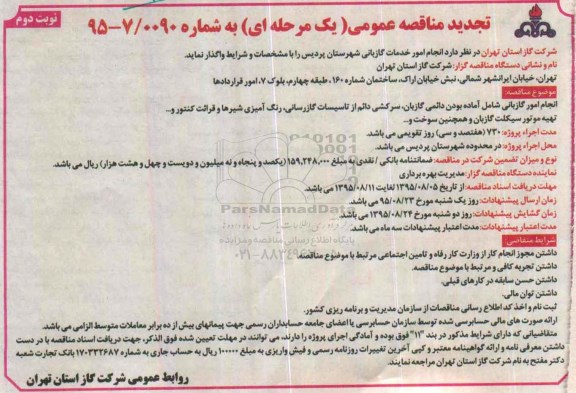 نوبت دوم
تجدید مناقصه عمومی( یک مرحله ای) به شماره ۷/۰۰۹۰-۹۵
شرکت گاز استان تهران در نظر دارد انجام امور خدمات گازبانی شهرستان پردیس را با مشخصات و شرایط واگذار نماید.
نام و نشانی دستگاه مناقصه گزار: شرکت گاز استان تهران
تهران، خیابان ایرانشهر شمالی، نبش خیابان اراک، ساختمان شماره ۱۶۰، طبقه چهارم، بلوک ۷، امور قراردادها
موضوع مناقصه:
انجام امور گازبانی شامل آماده بودن دائمی گازبان، سرکشی دائم از تاسیسات گازرسانی، رنگ آمیزی شیرها و قرائت کنتور و...
تهیه موتور سیکلت گازبان و همچنین سوخت و...
مدت اجراء پروژه: ۷۳۰ (هفتصد و سی) روز تقویمی می باشد.
محل اجراء پروژه: در محدوده شهرستان پردیس می باشد.
نوع و میزان تضمین شرکت در مناقصه: ضمانتنامه بانکی / نقدی به مبلغ ۱۵۹,۲۴۸,۰۰۰ (یکصد و پنجاه و نه میلیون و دویست و چهل و هشت هزار) ریال می باشد.
نماینده دستگاه مناقصه گزار: مدیریت بهره برداری
مهلت دریافت اسناد مناقصه: از تاریخ ۱۳۹۵/۰۸/۰۵ لغایت ۱۳۹۵/۰۸/۱۱ می باشد.
زمان ارسال پیشنهادات: روز یک شنبه مورخ ۹۵/۰۸/۲۳ می باشد.
زمان گشایش پیشنهادات: روز دو شنبه مورخ ۱۳۹۵/۰۸/۲۴ می باشد.
مدت اعتبار پیشنهادات: مدت اعتبار پیشنهادات سه ماه می باشد.
شرایط متقاضی:
داشتن مجوز انجام کار از وزارت کار رفاه و تامین اجتماعی مرتبط با موضوع مناقصه.
داشتن تجربه کافی و مرتبط با موضوع مناقصه.
داشتن حسن سابقه در کارهای قبلی.
داشتن توان مالی.
ثبت نام و اخذ کد اطلاع رسانی مناقصات از سازمان مدیریت و برنامه ریزی کشور.
ارائه صورت های مالی حسابرسی شده توسط سازمان حسابرسی یا اعضای جامعه حسابداران رسمی جهت پیمانهای بیش از ده برابر معاملات متوسط الزامی می باشد.
متقاضیانی که دارای شرایط مذکور در بند "۱۲" فوق بوده و آمادگی اجرای پروژه را دارند، می توانند در مهلت تعیین شده فوق الذکر، جهت دریافت اسناد مناقصه با در دست
داشتن معرفی نامه و ارائه گواهینامه معتبر و کپی آخرین تغییرات روزنامه رسمی و فیش واریزی به مبلغ ۱۰۰۰۰۰ ریال به حساب جاری به شماره ۱۷۰۳۳۲۶۸۷ بانک تجارت شعبه
دکتر مفتح به نام شرکت گاز استان تهران مراجعه نمایند.
روابط عمومی شرکت گاز استان تهران
ParsNamadData
پایگاه اطلاع رسانی مناقصه و مزایده